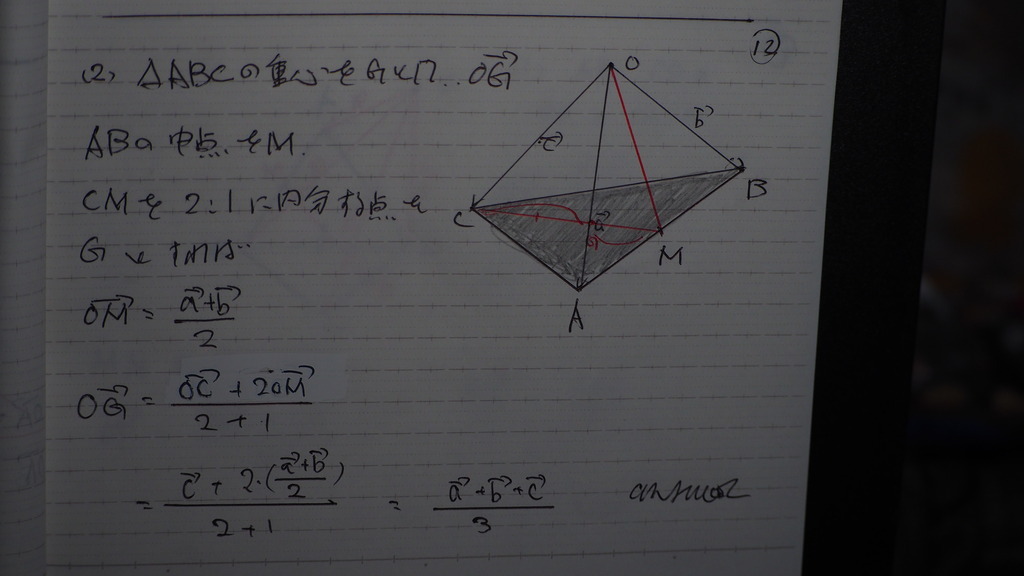 ⑫
(2) △ABCの重心をGとすると OG→
ABの中点をM.
CMを2:1に内分する点を
G と
OM→ = (a→+b→)/2
OG→ = (OC→ + 2OM→)/(2+1)
= (c→ + 2・((a→+b→)/2))/(2+1) = (a→+b→+c→)/3 answer
O
b→
c→
B
C
a→
G
M
A